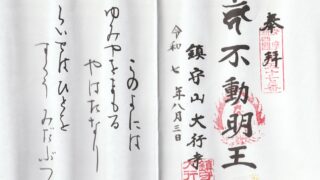 奉拝
不動明王
鎮守山大行寺
令和七年八月三日
このよには
ゆみやをまもる
やはたなり
らいせはひとを
すくうみだぶつ